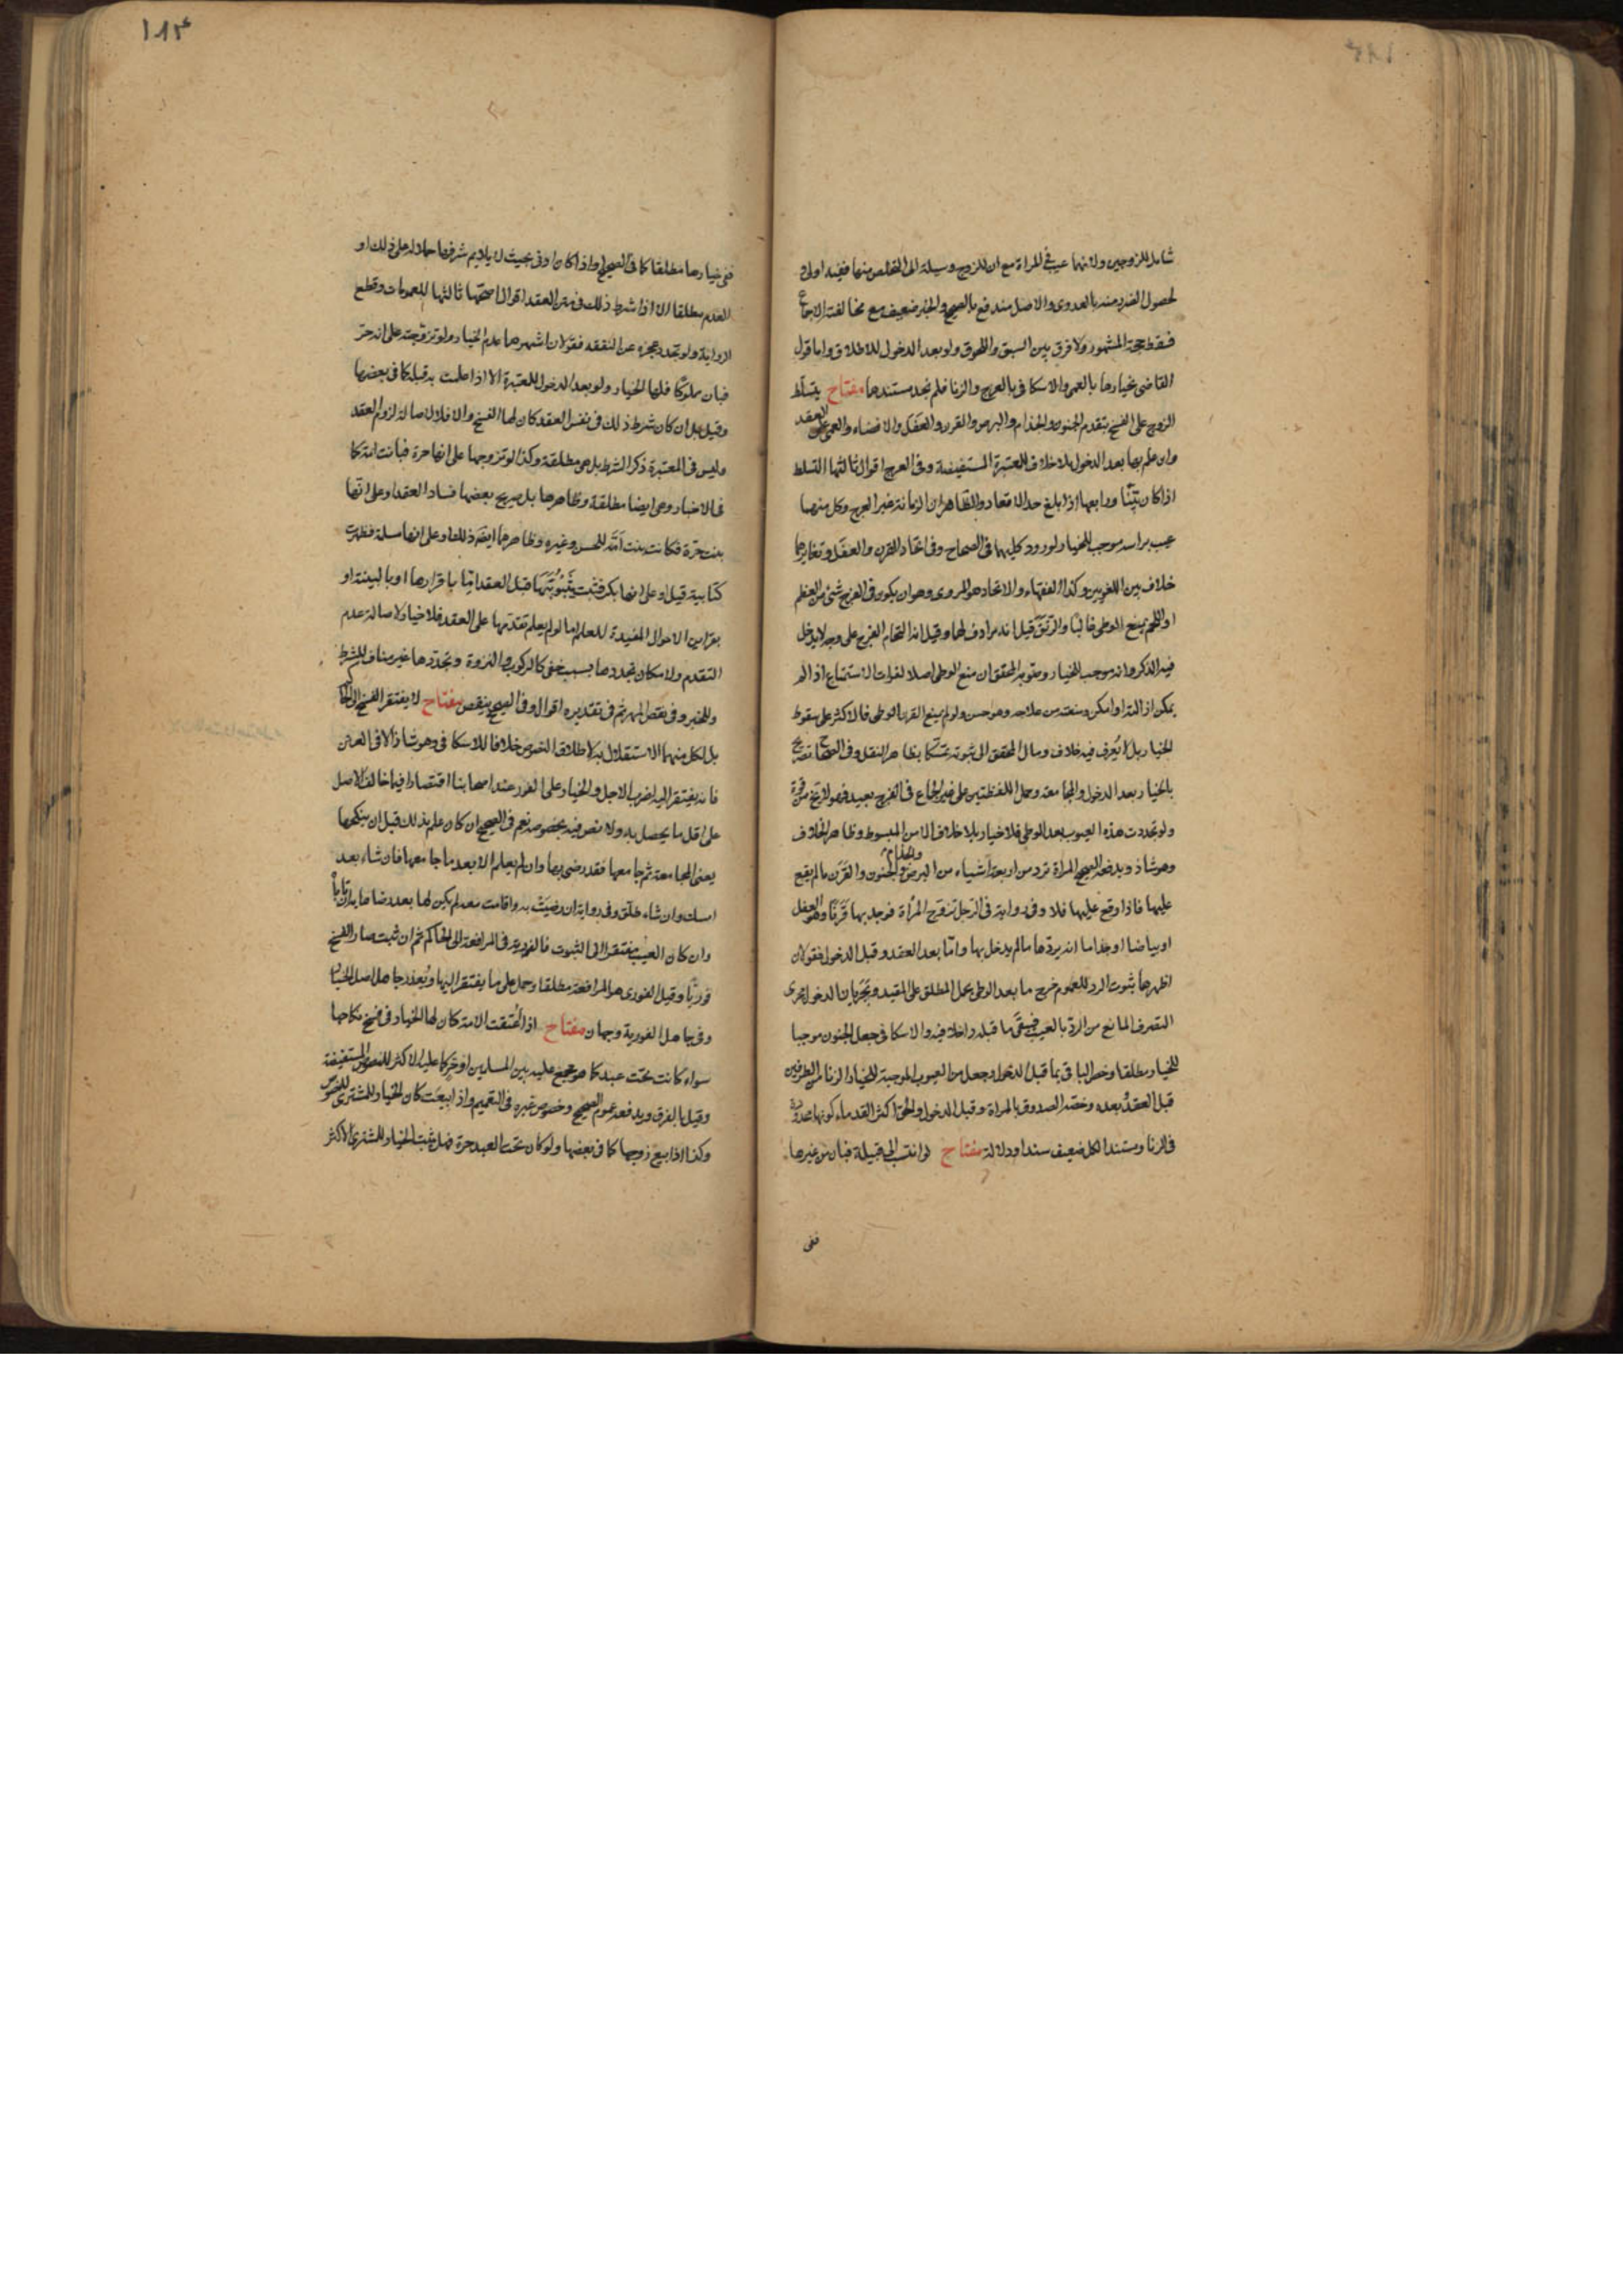 ١٨٣
شامل للزوجين ولانها عيب في المراة مع ان للزوج وسيلة الى التخلص منها ففيه اولى
لحصول الضرر منه بالعدوى والاصل مندفع بالصحيح والخبر ضعيف مع مخالفته الاجماع
فسقط حجة المشهور ولا فرق بين السبق واللحوق ولو بعد الدخول للاطلاق واما قول
القاضي بخيارها بالعمى والاسكافي بالعرج والزنا فلم نجد مستندها مفتاح يتسلط
الزوج على الفسخ بتقدم الجنون والجذام والبرص والقرن والعفل والافضاء والعمى على العقد
وان علم بها بعد الدخول بلا خلاف للمعتبرة المستفيضة وفي العرج اقوال ثالثها التسلط
اذا كان بيّنا ورابعها اذا بلغ حد الاقعاد والظاهر ان الزمانة غير العرج وكل منهما
عيب براسه موجب للخيار لورود كليهما في الصحاح وفي اتحاد القرن والعفل وتغايرهما
خلاف بين اللغويين وكذا الفقهاء والاتحاد هو المروى وهو ان يكون في الفرج شئ من العظم
او اللحم يمنع الوطى غالبا والرتق قيل انه مرادف لها وقيل انه التحام الفرج على وجه لا يدخل
فيه الذكر وانه موجب للخيار وصوبه المحقق ان منع الوطى اصلا لفوات الاستمتاع اذا لم
يمكن ازالته او امكن ومنعته من علاجه وهو حسن ولو لم يمنع القرن الوطى فالاكثر على سقوط
الخيار بل لا يعرف فيه خلاف ومال المحقق الى ثبوته تمسكا بظاهر النقل وفي الصحاح تصريح
بالخيار بعد الدخول والمجامعة وحمل اللفظتين على غير الجماع في الفرج بعيد
ولو تجددت هذه العيوب بعد الوطى فلا خيار بلا خلاف الا من المبسوط وظاهر الخلاف
وهو شاذ ويدفعه الصحيح المراة ترد من اربعة اشياء من البرص والجذام والجنون والقرن ما لم يقع
عليها فاذا وقع عليها فلا وفي رواية في الرجل تزوج المرأة فوجد بها قرنا وهو العفل
او بياضا او جذاما انه يردها ما لم يدخل بها واما بعد العقد وقبل الدخول فقولان
اظهرهما ثبوت الرد للعموم خرج ما بعد الوطى بحمل المطلق على المقيد وبجريان الدخول مجرى
التصرف المانع من الرد بالعيب فيبقى ما قبله داخلا فيه والاسكافي جعل الجنون موجبا
للخيار مطلقا وخص الباقى بما قبل الدخول وجعل من العيوب الموجبة للخيار الزنا من الطرفين
قبل العقد وبعده وخصه الصدوق بالمراة وقبل الدخول والحق اكثر القدماء كونها محدودة
في الزنا ومستند الكل ضعيف سندا ودلالة مفتاح لو انتسب الى قبيلة فبان من غيرها
ففى
ففى خيارها مطلقا كما في الصحيح او اذا كان ادنى بحيث لا يلايم شرفها حملا له على ذلك او
العدم مطلقا الا اذا شرط ذلك في متن العقد اقوال اصحها ثالثها للعمومات وقطع
الرواية ولو تجدد عجزه عن النفقه فقولان اشهرهما عدم الخيار ولو تزوجته على انه حر
فبان مملوكا فلها الخيار ولو بعد الدخول للمعتبرة الا اذا علمت به قبله كما في بعضها
وقيل بل ان كان شرط ذلك في نفس العقد كان لها الفسخ والا فلا لاصالة لزوم العقد
وليس في المعتبرة ذكر الشرط بل هى مطلقة وكذا لو تزوجها على انها حرة فبانت امة كما
في الاخبار وهى ايضا مطلقة وظاهرها بل صريح بعضها فساد العقد او على انها
بنت حرة فكانت بنت امة للحسن وغيره وظاهرهما ايضا ذلك او على انها مسلمة فظهرت
كتابية قيل او على انها بكر فثبت ثيبوبتها قبل العقد اما باقرارها او بالبينة او
بقراين الاحوال المفيدة للعلم اما لو لم يعلم تقدمها على العقد فلا خيار لاصالة عدم
التقدم ولامكان تجددها بسبب خفى كالركوب والنزوة وتجددها غير مناف للشرط
وللخبر وفي نقص المهر ثم في تقديره اقوال وفي الصحيح ينقص مفتاح لا يفتقر الفسخ الى الحاكم
بل لكل منهما الاستقلال به لاطلاق النصوص خلافا للاسكافي وهو شاذ الا في العنن
فانه يفتقر اليه لضرب الاجل والخيار على الفور عند اصحابنا اقتصارا فيما خالف الاصل
على اقل ما يحصل به ولا نص فيه بخصوصه نعم في الصحيح ان كان علم بذلك قبل ان ينكحها
يعنى المجامعة ثم جامعها فقد رضى بها وان لم يعلم الا بعد ما جامعها فان شاء بعد
امسك وان شاء طلق وفي رواية ان رضيت به واقامت معه لم يكن لها بعد رضاها به ان تاباه
وان كان العيب مفتقرا الى الثبوت فالفورية في المرافعة الى الحاكم ثم ان ثبت صار الفسخ
فوريا وقيل الفورى هو المرافعة مطلقا وحمل على ما يفتقر اليها ويعذر جاهل اصل الخيار
وفي جاهل الفورية وجهان مفتاح اذا اعتقت الامة كان لها الخيار في فسخ نكاحها
سواء كانت تحت عبد كما هو مجمع عليه بين المسلمين او حر كما عليه الاكثر للنصوص المستفيضة
وقيل بالفرق ويدفعه عموم الصحيح وخصوص غيره في التعميم واذا بيعت كان الخيار للمشترى للنصوص
وكذا اذا بيع زوجها كما في بعضها ولو كان تحت العبد حرة فهل يثبت الخيار للمشترى الاكثر